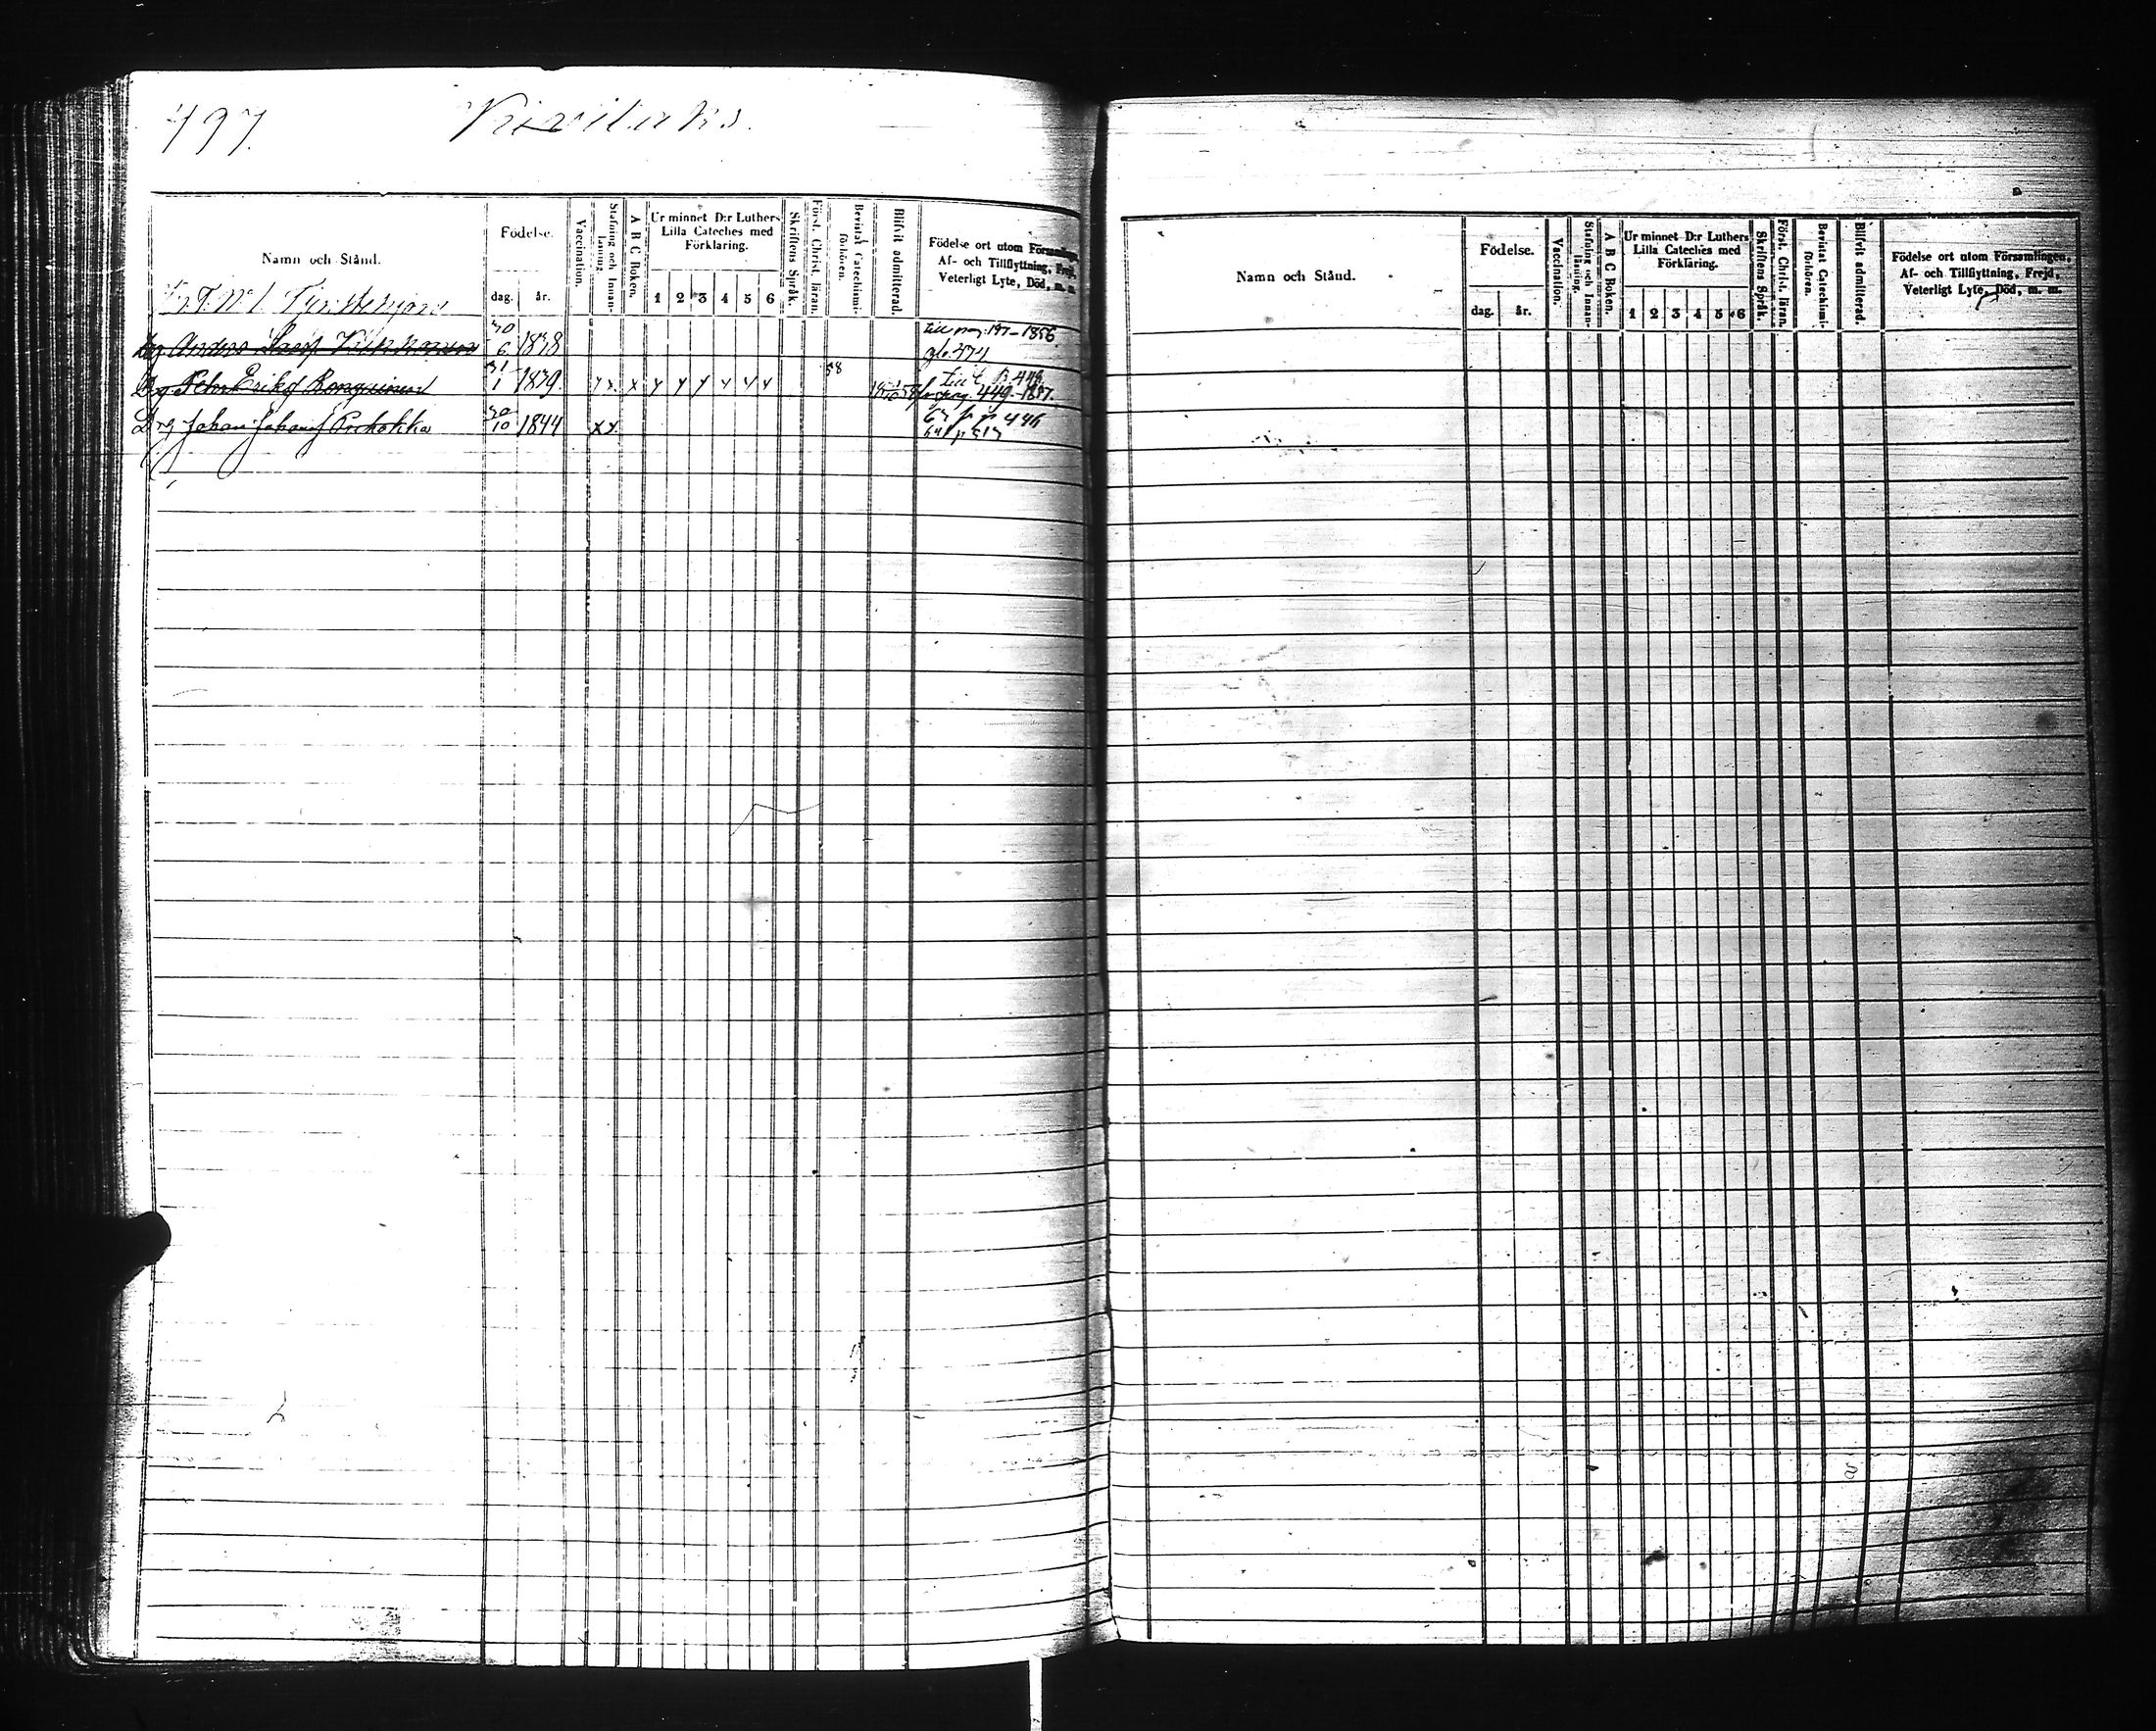 497. Kivilaks.
Namn och Stånd.
Födelse.
dag. år.
Vaccination.
Stafning och Innan-läsning.
A B C Boken.
Ur minnet D:r Luthers Lilla Cateches med Förklaring.
1 2 3 4 5 6
Skriftens Språk.
Först. Christ. läran.
Bevistat Catechismi-förhören.
Blifvit admitterad.
Födelse ort utom Församlingen,
Af- och Tillflyttning, Frejd,
Veterligt Lyte, Död, m. m.
Drg Anders 30/6 1838 till pag: 197-1856
Drg Pehr Eriks Ronguinen 31/1 1839. x x x x x x x x x 58 pag. 449-1857.
Drg Johan Johans 30/10 1844 x x. 63 fr p 446
Namn och Stånd.
Födelse.
dag. år.
Vaccination.
Stafning och Innan-läsning.
A B C Boken.
Ur minnet D:r Luthers Lilla Cateches med Förklaring.
1 2 3 4 5 6
Skriftens Språk.
Först. Christ. läran.
Bevistat Catechismi-förhören.
Blifvit admitterad.
Födelse ort utom Församlingen,
Af- och Tillflyttning, Frejd,
Veterligt Lyte, Död, m. m.